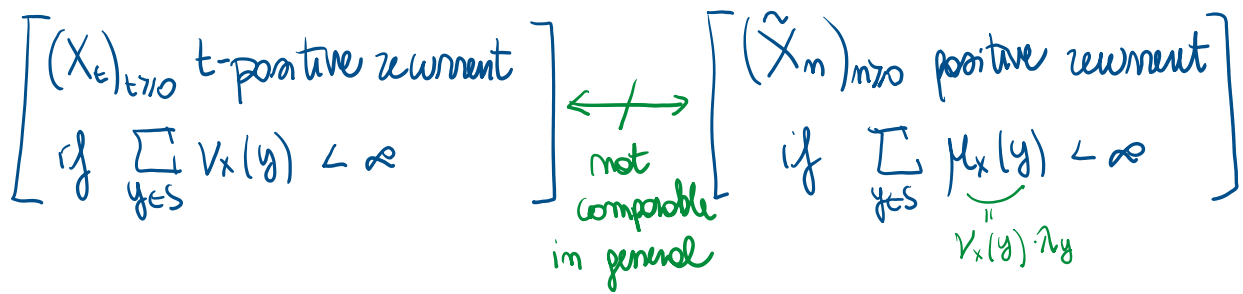 [ (X_t)_{t≥0} t-positive recurrent
if Σ_{y∈S} ν_x(y) < ∞ ]
not
comparable
in general
[ (X̃_n)_{n≥0} positive recurrent
if Σ_{y∈S} μ_x(y) < ∞ ]
=
ν_x(y)·λ_y